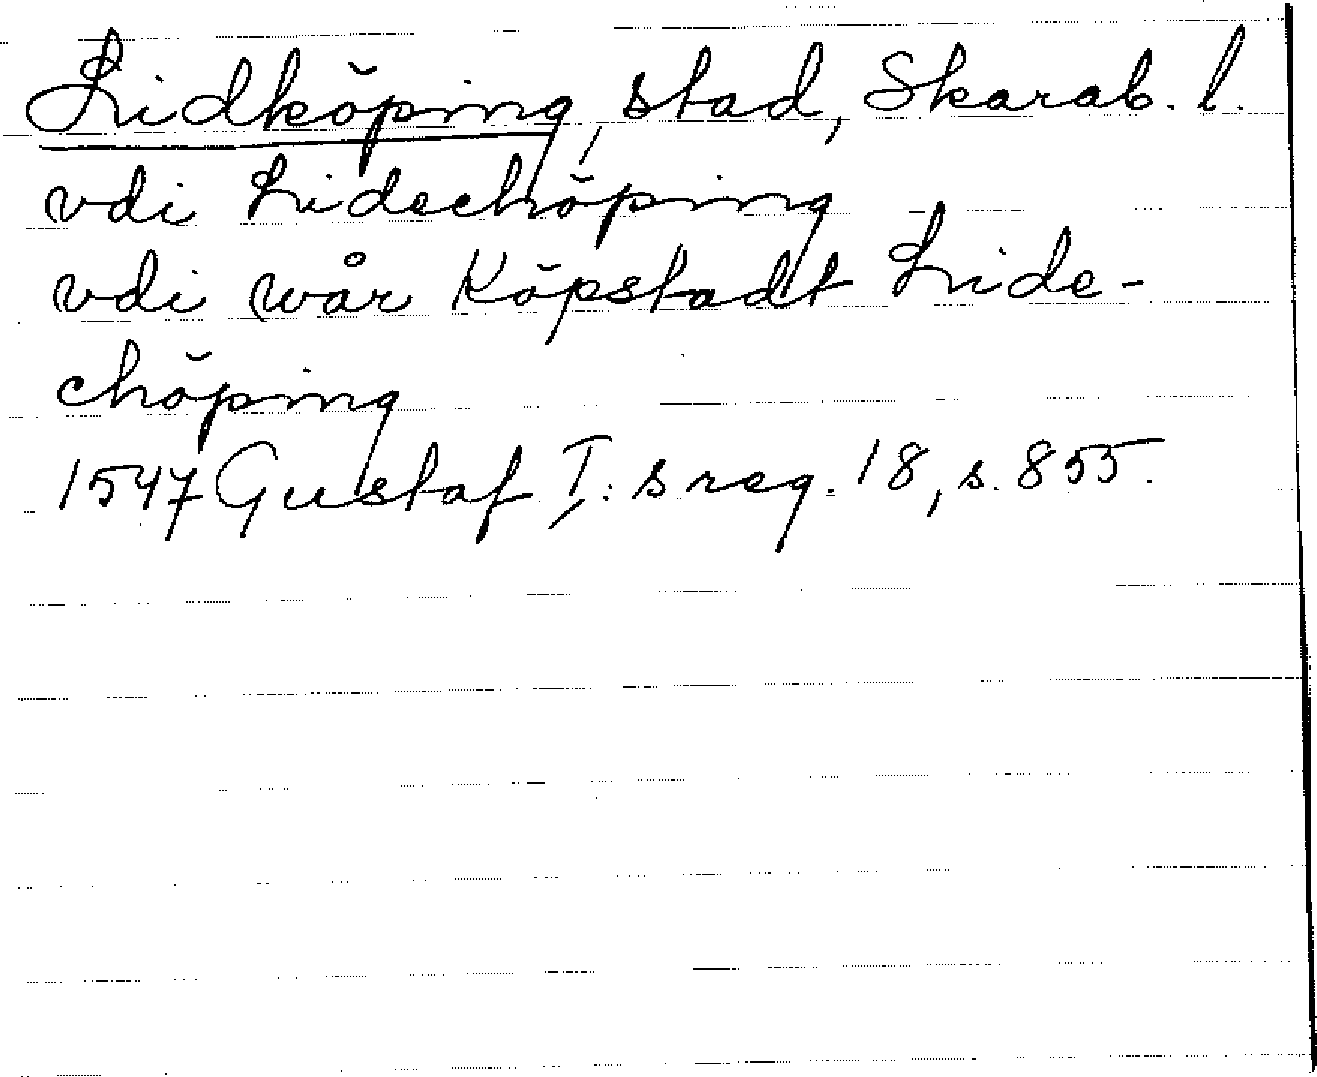 Lidköping, stad, Skarab. l.
vdi Lidechöping
vdi wår Köpstadt Lide-
chöping
1547 Gustaf I:s reg. 18, s. 855.